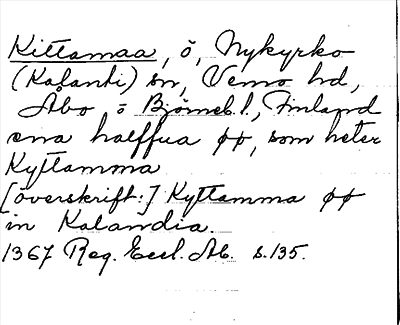 Kittamaa, ö, Nykyrko
(Kalanti) sn, Vemo hd,
Åbo o Björneb l., Finland
ena halffua øø, som heter
Kyttamma
[överskrift:] Kyttamma øø
in Kalandia.
1367 Reg. Eccl. Ab. s. 135.